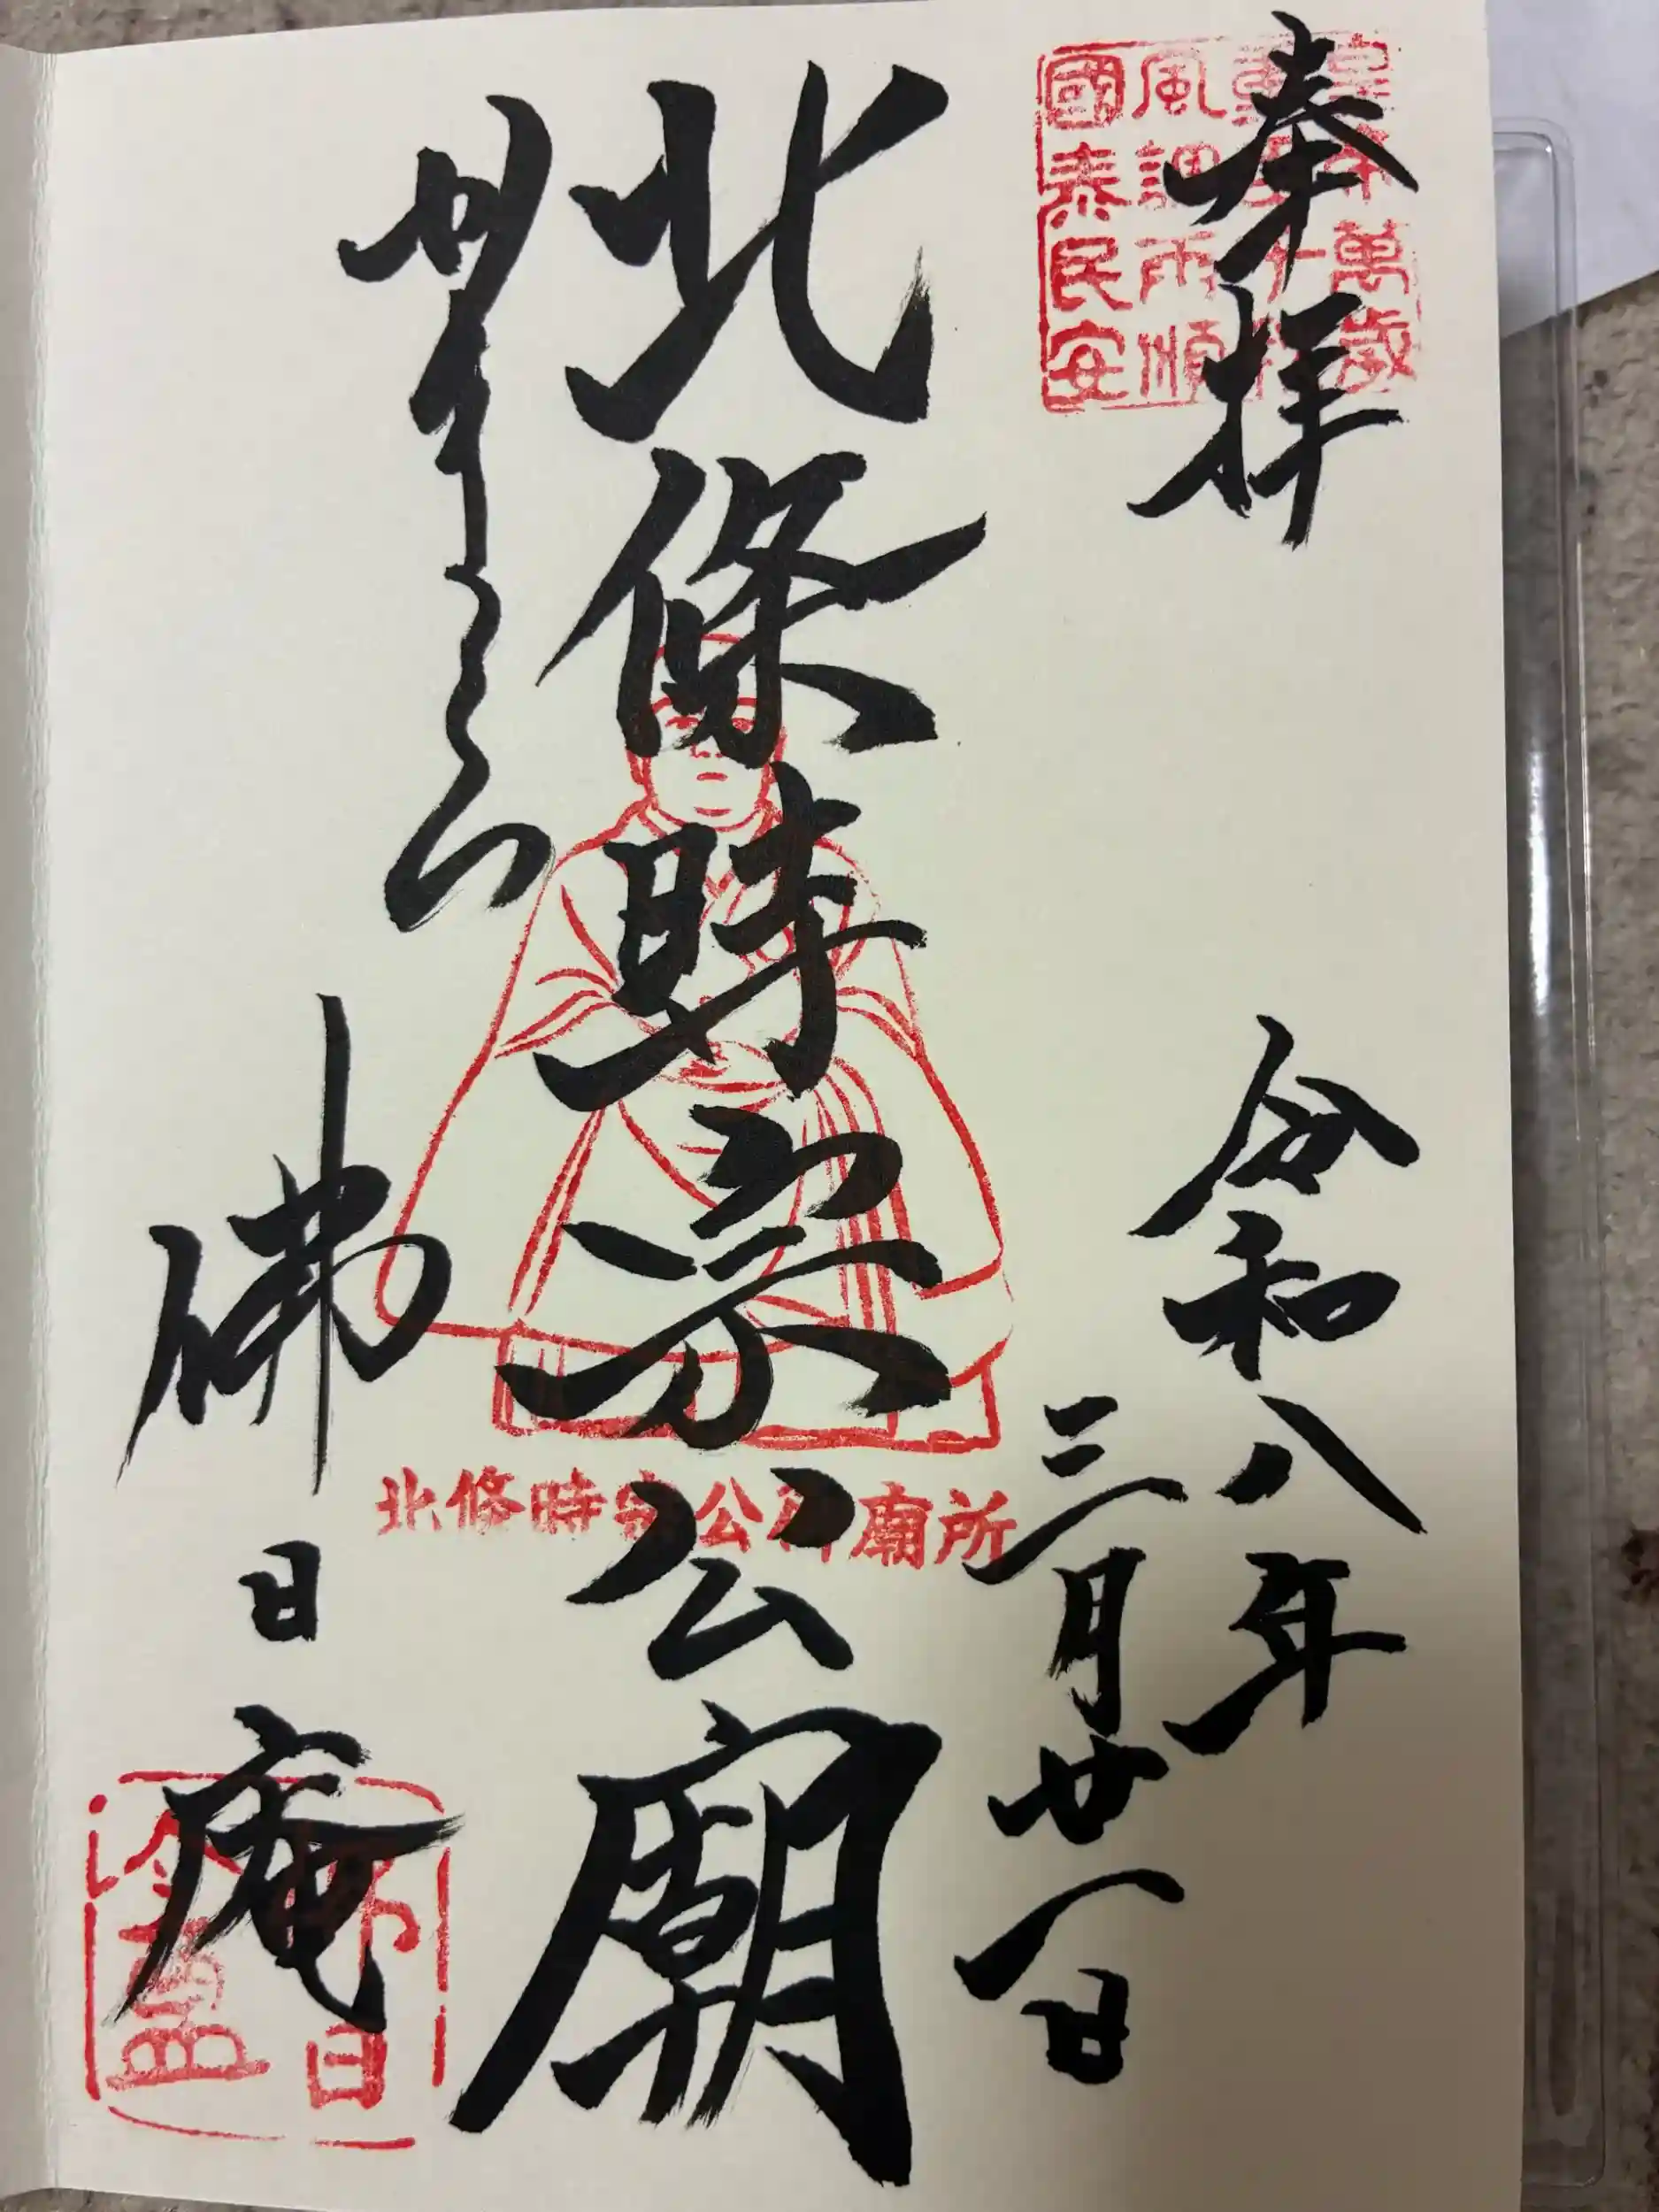 奉拝
令和八年
三月廿一日
皇帝萬歳
風調雨順
國泰民安
北條時宗公廟
北條時宗公御廟所
かまくら
佛日庵